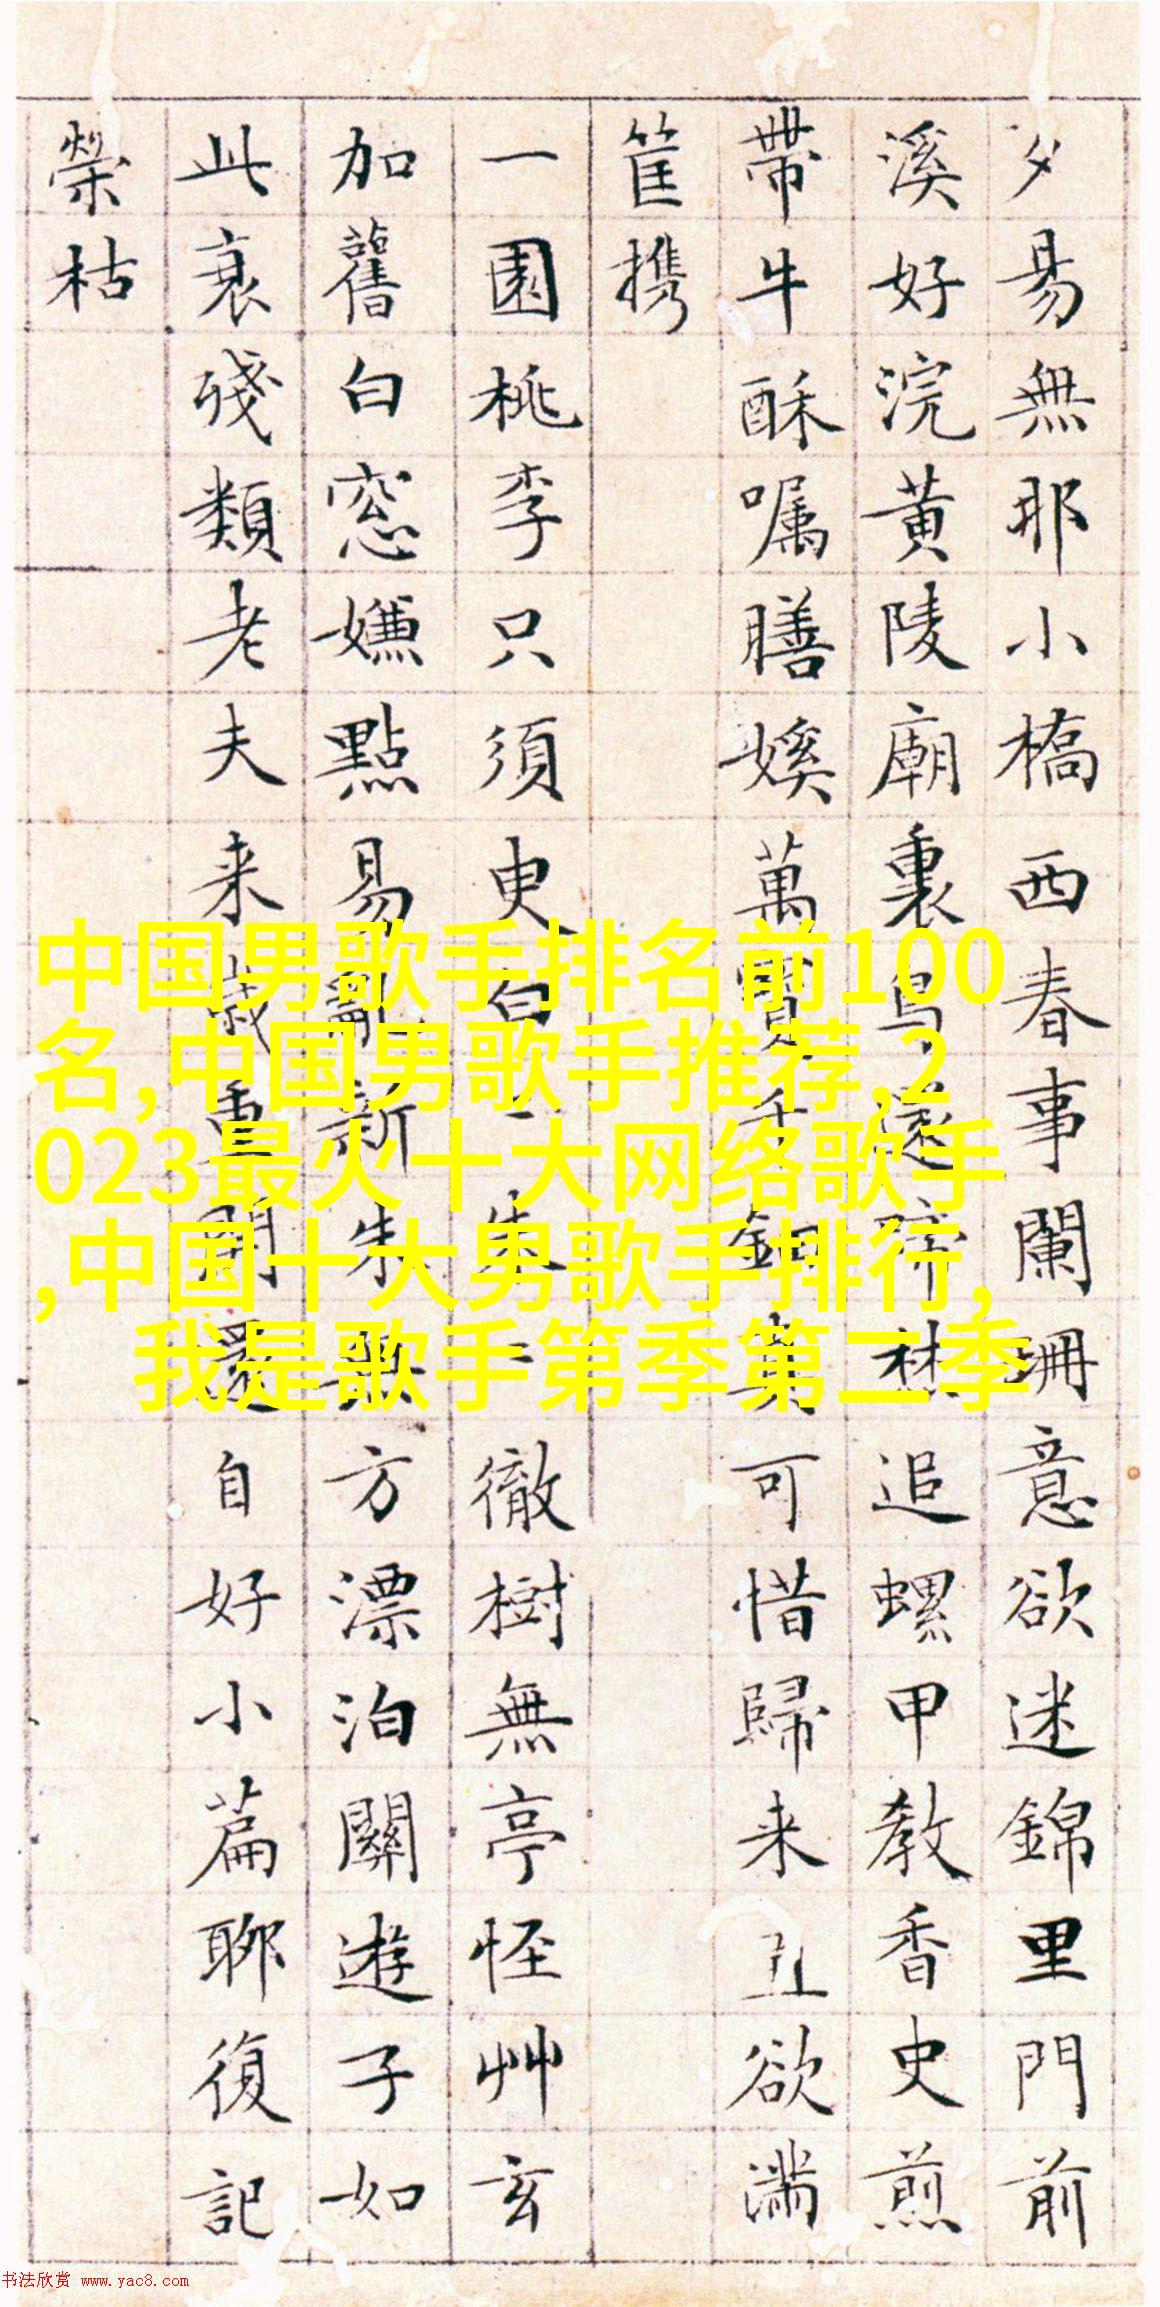 夕易無那小橋西春事闌珊意欲迷錦里門前
溪好浣黃陵廟裏鳥啼追螺甲教香史煎
帶牛酥嘱膳萬寶千鈿真可惜歸来五欲滿
筐携
一園桃李只須臾白〻朱〻徹樹無亭怪艸玄
加舊白窓嫌點易亂新朱無方漂泊關遊子如
此衰殘類老夫来歲重開還自好小篇聊復記
榮枯
中国男歌手排名前100
名,中国男歌手推荐,2
023最火十大网络歌手
,中国十大男歌手排行,
我是歌手第季第二季
书法欣赏 www.yac8.com